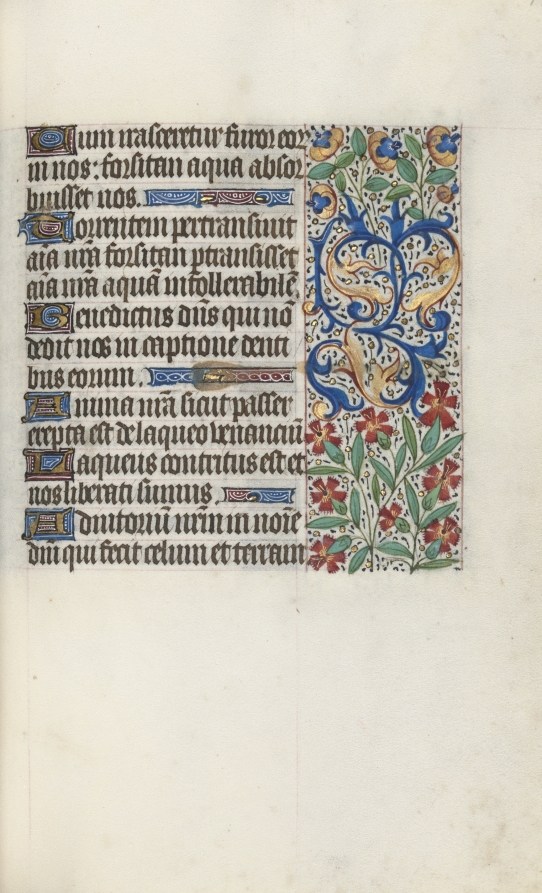 Cum irasceretur furor eor
in nos: forsitan aqua absor
buisset nos.
Torrentem pertransiuit
aīa nr̄a forsitan ꝑtransisset
aīa nr̄a aquā intollerabilē
Benedictus dn̄s qui nō
dedit nos in captione denti
bus eorum.
Anima nr̄a sicut passer
erepta est de laqueo venanciū
Laqueus contritus est et
nos liberati sumus.
Adiutoriū nr̄m in noīe
dn̄i qui fecit celum et terram